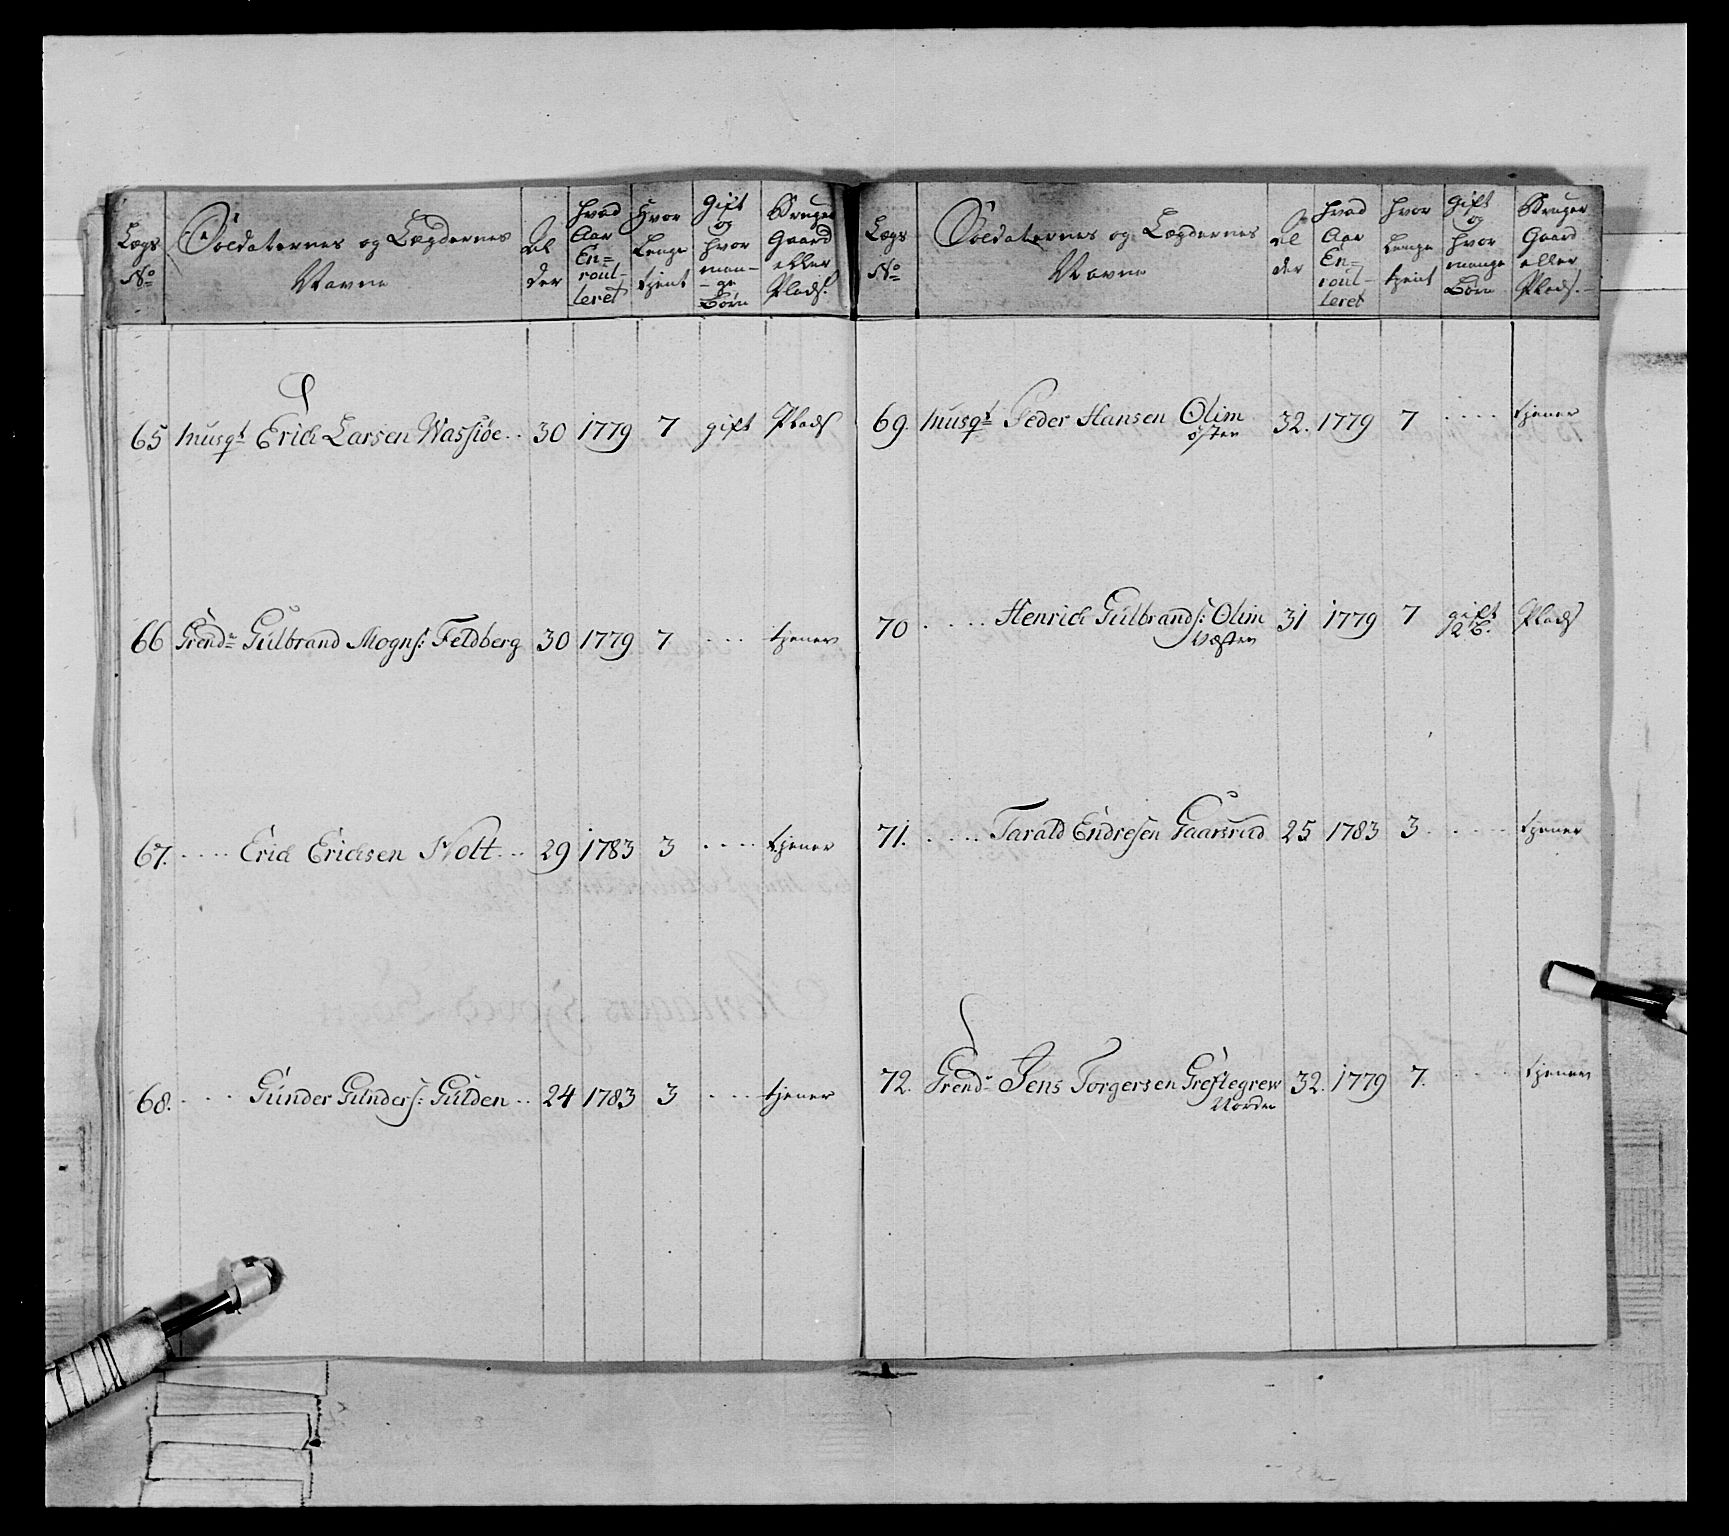 Lægs No Soldaternes og Lægdernes Navne Alder hvad Aar Enroulleret Hvor Lenge tient gift og hvor mange Børn Bruger Gaard eller Plads.
65 Musqt Erich Larsen Wassiøe .. 30 1779 7 gift Plads
66 Grendr Gulbrand Mogns: Feldberg 30 1779 7 .... tjener
67. .... Erich Erichsen Nolt ... 29 1783 3 .... tjener
68. .... Gunder Gunders: Gulden .. 24 1783 3 .... tjener
Lægs No Soldaternes og Lægdernes Navne Alder hvad Aar Enroulleret hvor Lenge tient gift og hvor mange Børn Bruger Gaard eller Plads.
69. Musqt Peder Hansen Olim 32. 1779 7 .... tjener
østen
70 .... Henrich Gulbrands: Olim 31 1779 7 gift 2 B. Plads
Wæsten
71. .... Tarald Endresen Gaarsrud 25 1783 3. .... tjener
72. Grendr Jens Torgersen Greflegrew 32. 1779 7. .... tjener
Norden